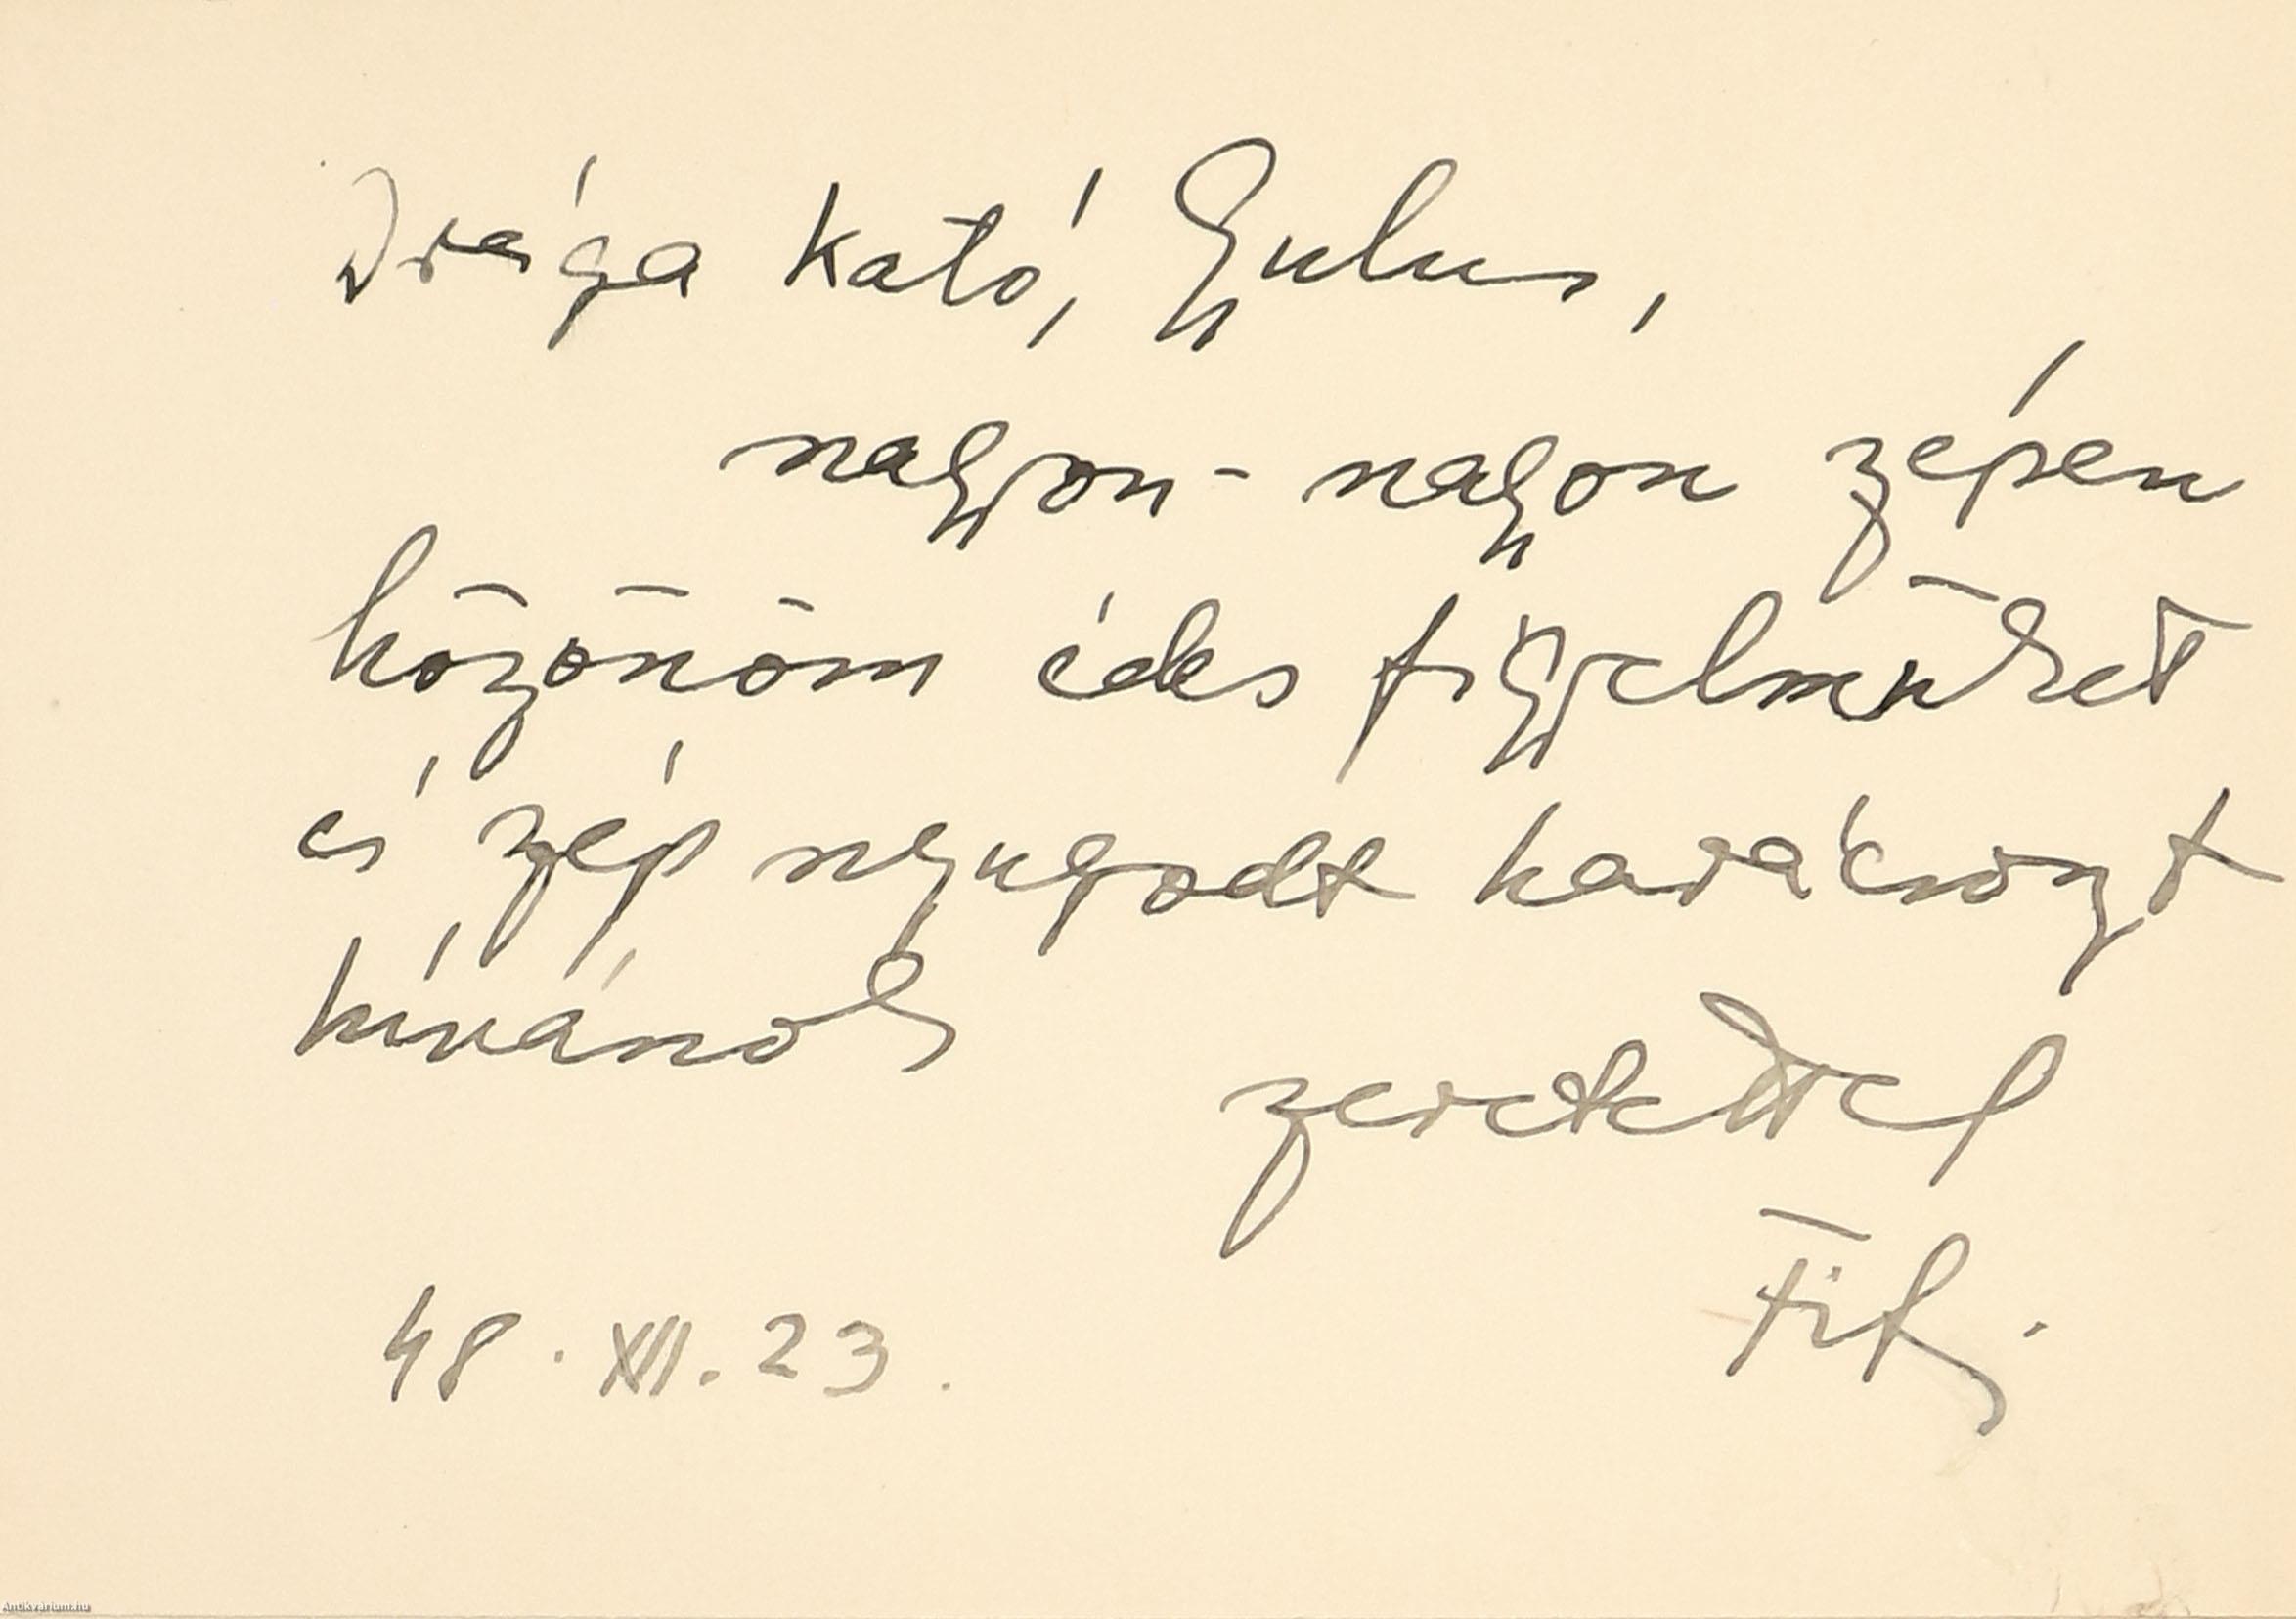 Drága Kató, Gyulus,
nagyon-nagyon szépen
köszönöm édes figyelmüket
és szép nyugodt karácsonyt
kívánok
szeretettel
Fif.
48. XII. 23.
Antikvarium.hu